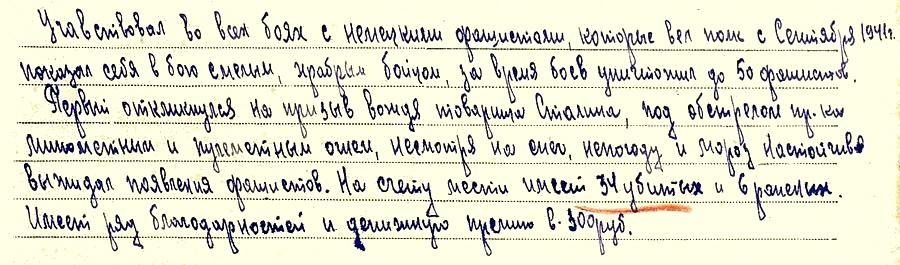 Учавствовал во всех боях с немецкими фашистами, которые вел полк с Сентября 1941г.
показал себя в бою смелым, храбрым бойцом, за время боев уничтожил до 50 фашистов.
Первый откликнулся на призыв вождя товарища Сталина, под обстрелом пр-ка
минометным и пулеметным огнем, несмотря на снег, непогоду и мороз настойчиво
выжидал появления фашистов. На счету мести имеет 34 убитых и 6 раненых.
Имеет ряд благодарностей и денежную премию в 300руб.